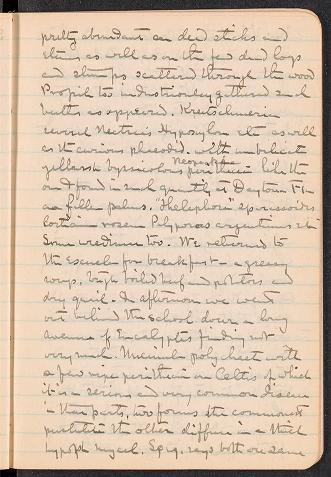 pretty abundant on dead sticks and
stems as well as on the few dead logs
and stumps scattered through the wood
too industriously gathered such
as appeared. Kretschmaria
several Nectrias Hypoxylon etc as well
as the curious with umbilicate
yellowish byssicolous perithecia like the
one I found in such quantity at Daytona Fla
on palms. "Thelephora"
Corticium Polyporus etc
Some too. We returned to
the Escuela for breakfast – a greasy
soup, boiled beef and potatoes and
dry quil. In afternoon we went
out behind the school down a long
avenue of Eucalyptus finding not
very much. with
a few ripe perithecia on Celtis of which
it is a serious and very common disease
in these parts, two forms the commonest
pustulate the other diffuse in a thick
hypoph mycel. Speg. says both one same